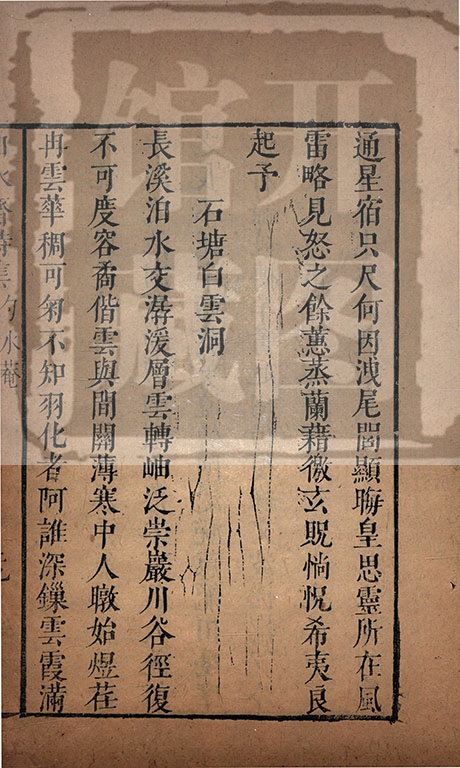 通星宿只尺何因洩尾閭顯晦皇思靈所在風
雷略見怒之餘蕙蒸蘭藉徼玄貺惝怳希夷良
起予
石塘白雲洞
長溪泊水交潺湲層雲轉岫泛崇巖川谷徑復
不可度容裔偕雲與間關薄寒中人暾始煜荏
冉雲華稠可匊不知羽化者阿誰深鏁雲霞滿
水菴
开图
馆藏